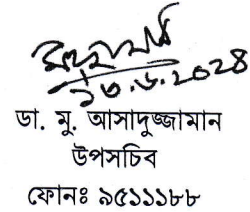 ১৩.৬.২০২৪
ডা. মু. আসাদুজ্জামান
উপসচিব
ফোনঃ ৯৫১১১৮৮